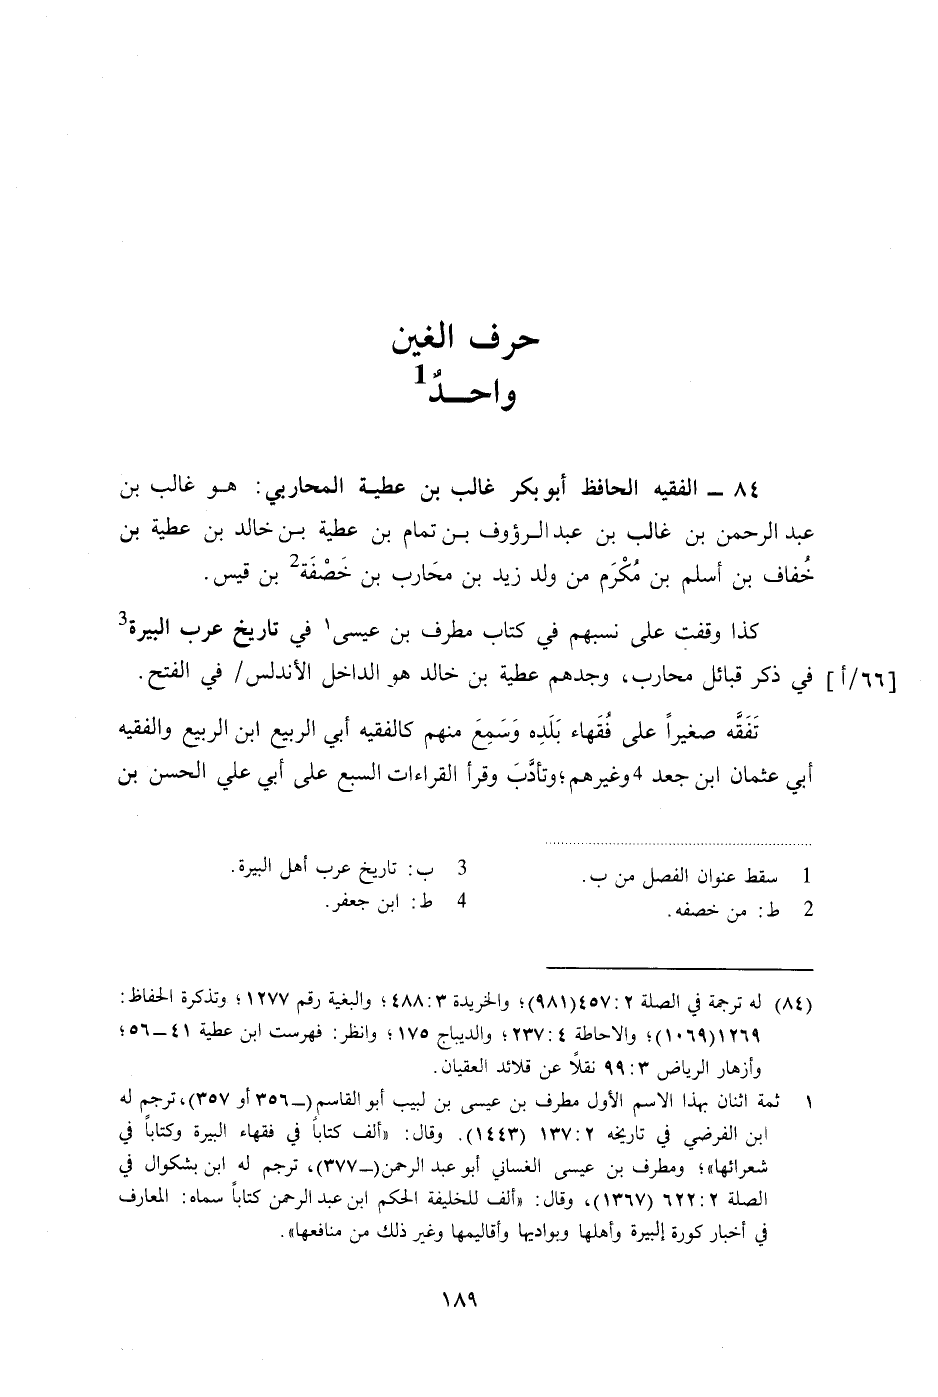 حرف الغين
واحدٌ1
٨٤ ـ الفقيه الحافظ أبو بكر غالب بن عطية المحاربي: هو غالب بن
عبد الرحمن بن غالب بن عبد الرؤوف بن تمام بن عطية بن خالد بن عطية بن
خُفاف بن أسلم بن مُكْرَم من ولد زيد بن محَارب بن خَصْفَة2 بن قيس.
كذا وقفت على نسبهم في كتاب مطرف بن عيسى١ في تاريخ عرب البيرة3
[٦٦/أ] في ذكر قبائل محارب، وجدهم عطية بن خالد هو الداخل الأندلس/ في الفتح.
تَفَقَّه صغيراً على فُقَهاء بَلَدِه وَسَمِعَ منهم كالفقيه أبي الربيع ابن الربيع والفقيه
أبي عثمان ابن جعد 4 وغيرهم؛ وتأدَّبَ وقرأ القراءات السبع على أبي علي الحسن بن
1 سقط عنوان الفصل من ب.
2 ط: من خصفه.
3 ب: تاريخ عرب أهل البيرة.
4 ط: ابن جعفر.
(٨٤) له ترجمة في الصلة ٢: ٤٥٧(٩٨١)؛ والخريدة ٣: ٤٨٨؛ والبغية رقم ١٢٧٧؛ وتذكرة الحفاظ:
١٢٦٩(١٠٦٩)؛ والاحاطة ٤: ٢٣٧؛ والديباج ١٧٥؛ وانظر: فهرست ابن عطية ٤١ــ٥٦؛
وأزهار الرياض ٣: ٩٩ نقلاً عن قلائد العقيان.
١ ثمة اثنان بهذا الاسم الأول مطرف بن عيسى بن لبيب أبو القاسم(ــ٣٥٦ أو ٣٥٧)، ترجم له
ابن الفرضي في تاريخه ٢: ١٣٧ (١٤٤٣). وقال: «ألف كتاباً في فقهاء البيرة وكتاباً في
شعرائها»؛ ومطرف بن عيسى الغساني أبو عبد الرحمن(ــ٣٧٧)، ترجم له ابن بشكوال في
الصلة ٢: ٦٢٢ (١٣٦٧)، وقال: «ألف للخليفة الحكم ابن عبد الرحمن كتاباً سماه: المعارف
في أخبار كورة إلبيرة وأهلها وبواديها وأقاليمها وغير ذلك من منافعها».
١٨٩